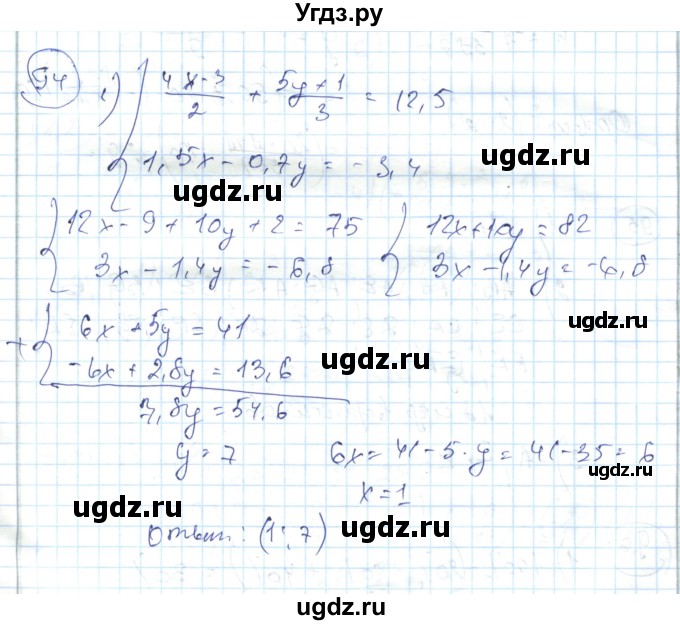 Угдз.ру
94 1) { (4x-3)/2 + (5y+1)/3 = 12,5
1,5x - 0,7y = -3,4
ugdz.ru ugdz.ru
{ 12x - 9 + 10y + 2 = 75 { 12x + 10y = 82
3x - 1,4y = -6,8 3x - 1,4y = -6,8
ugdz.ru
+ { 6x + 5y = 41
-6x + 2,8y = 13,6
ugdz.ru
7,8y = 54,6
y = 7 6x = 41 - 5·y = 41 - 35 = 6
ugdz.ru
x = 1
ugdz.ru
Ответ: (1; 7)
ugdz.ru
ugdz.ru